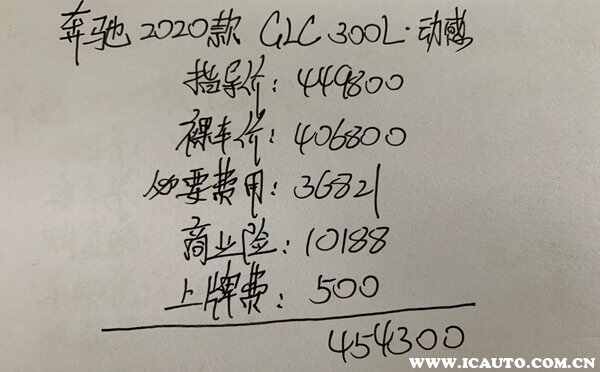 奔驰 2020款 GLC 300L·动感
指导价:449800
裸车价:406800
必要费用:36821
商业险:10188
上牌费:500
454300
WWW.ICAUTO.COM.CN